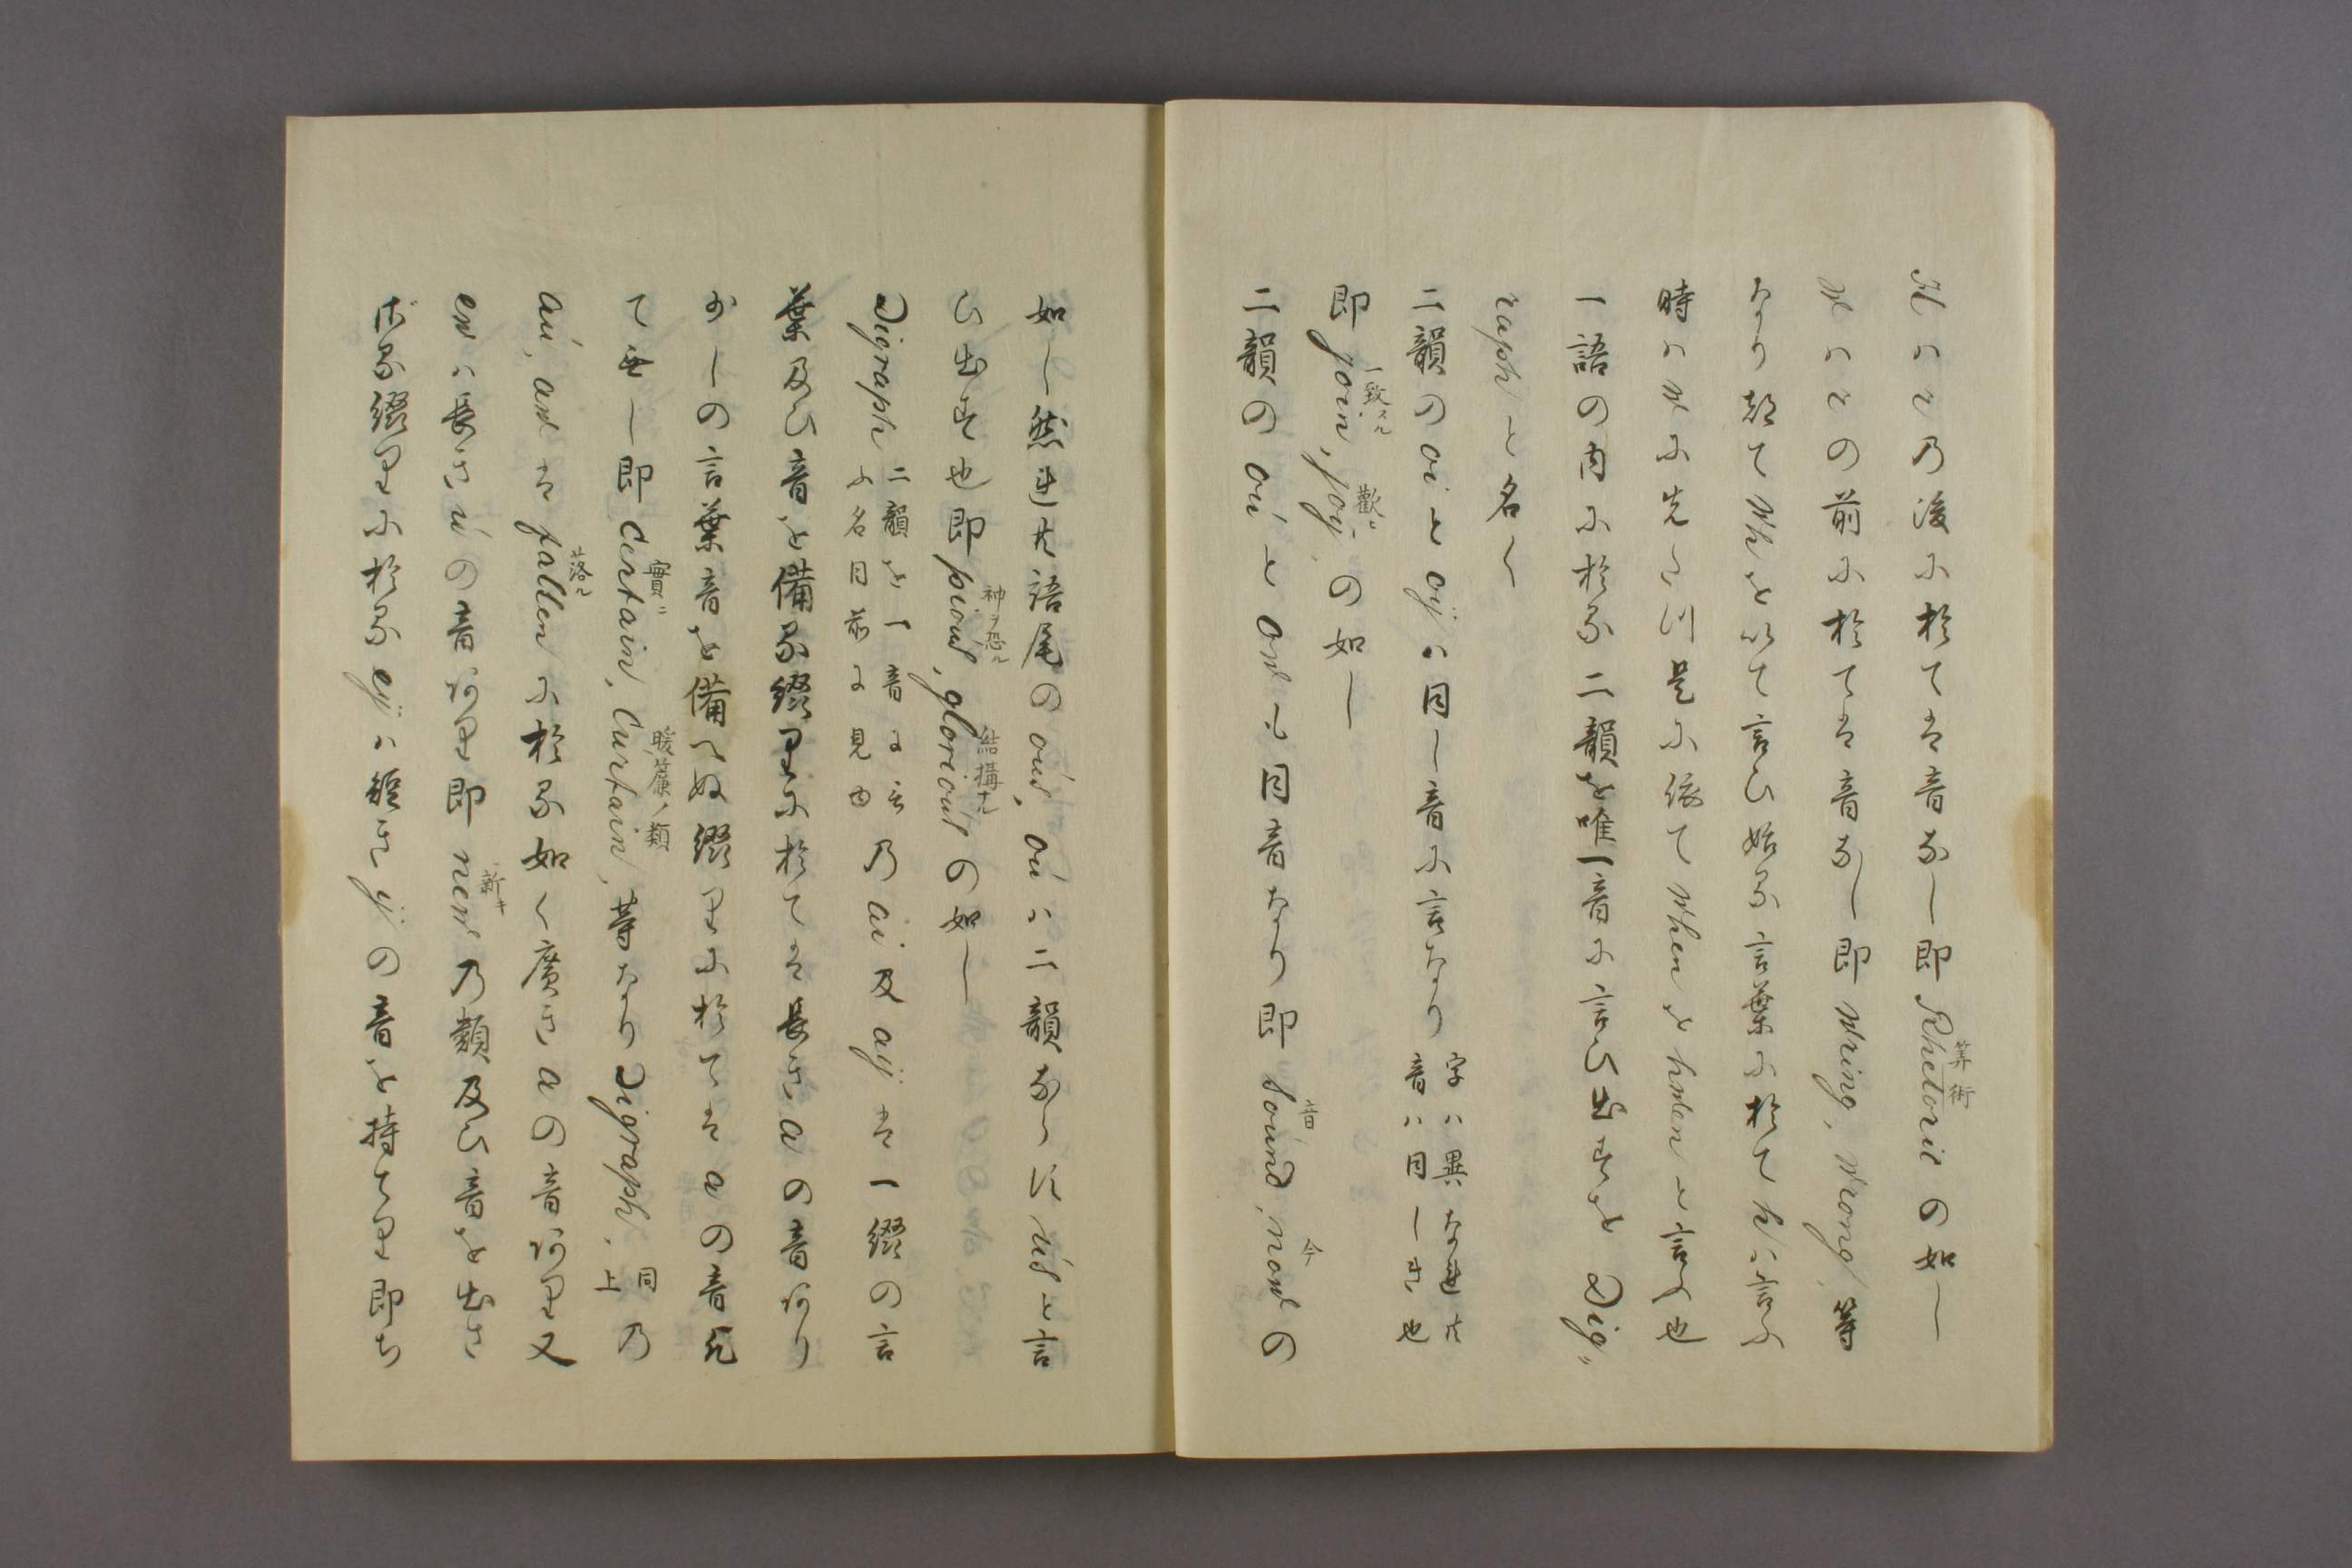 Hハrの後に於ては音なし即Rhetoric算術の如し
wハrの前に於ては音なし即wring, wrong, 等
なり都てwhを以て言ひ始る言葉に於てhハ言ふ
時ハwに先たつ是に依てwhenをhwenと言ふ也
一語の内に於る二韻を唯一音に言ひ出すを Dig〃
raphと名く
二韻のoiとoyハ同し音に言なり字ハ異なれ共音ハ同しき也
即join一致スル, joy歡ヒの如し
二韻のouとowも同音なり即 sound音, now今の
如し然れ共語尾のous, ouハ二韻ならすusと言
ひ出す也即pious神ヲ恐ル, glorious結搆ナルの如し
Digraph二韻を一音に言ふ名目前に見由乃ai及ayは一綴の言
葉及ひ音を備る綴りに於ては長きaの音あり
少しの言葉音を備へぬ綴りに於てはeの音
て無し即certain實ニ, curtain暖簾ノ類, 等なりDigraph, 同上乃
au, awはfallen落ルに於る如く廣きaの音あり又
ewハ長きuの音あり即new新キ乃類及ひ音を出さ
ざる綴りに於るeyハ短きyの音を持てり即ち